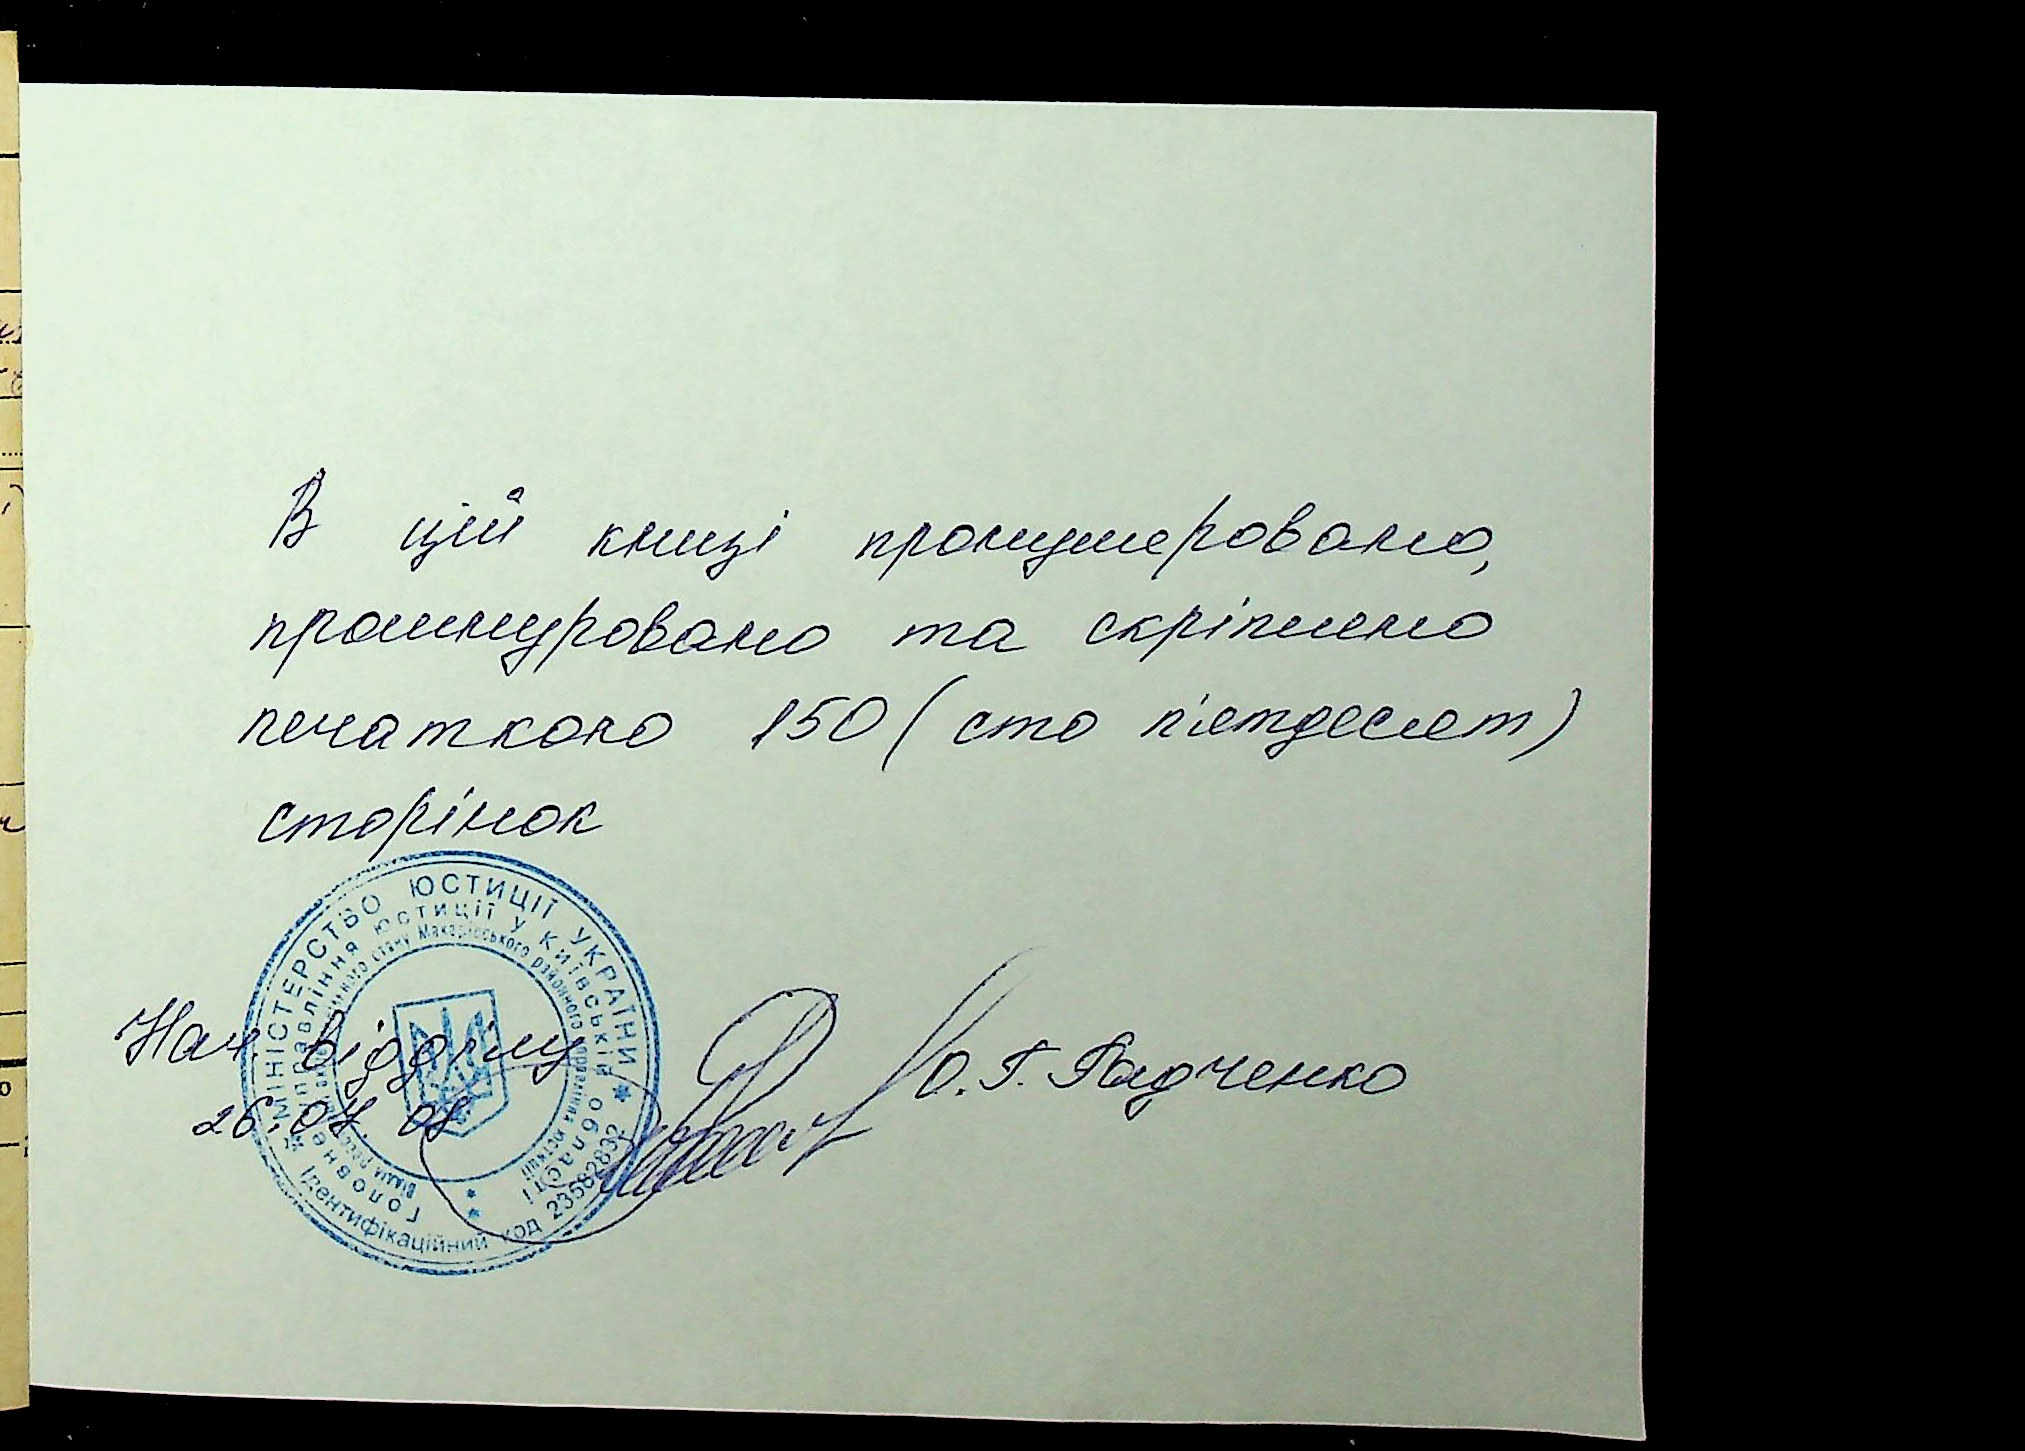 В цій книзі пронумеровано,
прошнуровано та скріплено
печаткою 150 (сто п'ятдесят)
сторінок
МІНІСТЕРСТВО ЮСТИЦІЇ УКРАЇНИ
Головне управління юстиції у Київській області
стану Макарівського районного управління юстиції
Ідентифікаційний код 23582832
Нач. відділу О.Г. Радченко
26.07.08